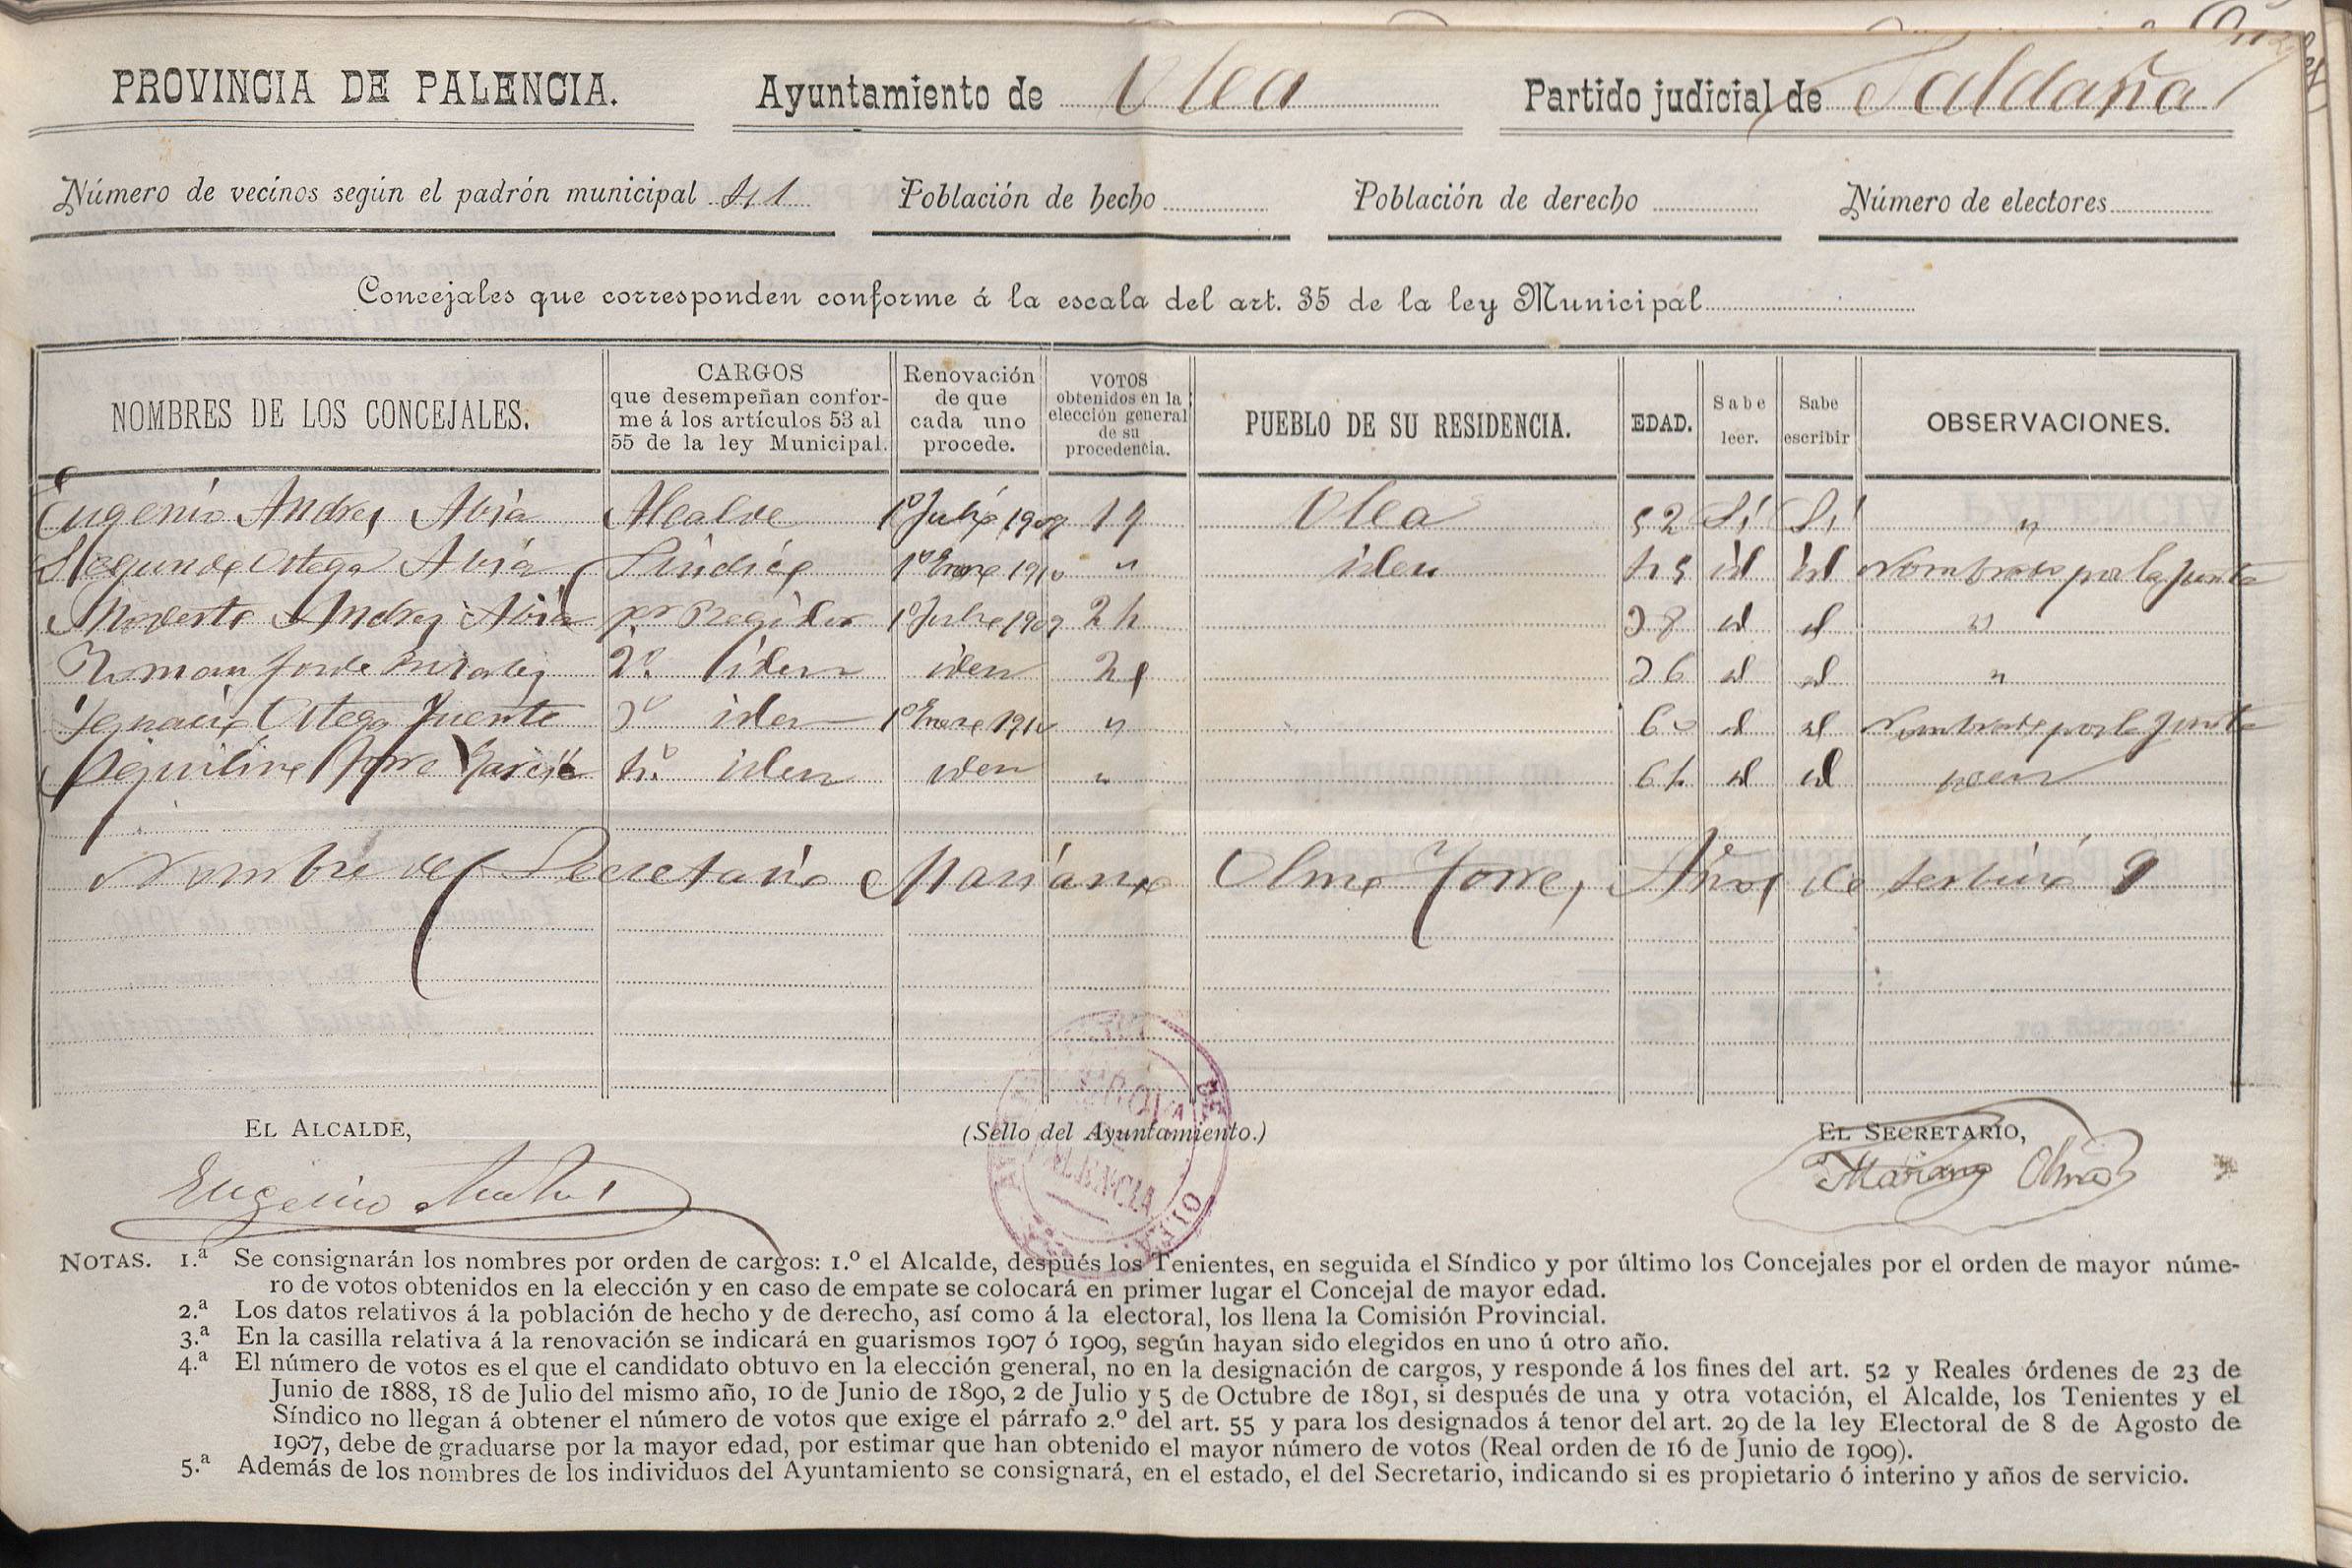 PROVINCIA DE PALENCIA. Ayuntamiento de Olea Partido judicial de Saldaña
Número de vecinos según el padrón municipal 41 Población de hecho Población de derecho Número de electores
Concejales que corresponden conforme á la escala del art. 35 de la ley Municipal
NOMBRES DE LOS CONCEJALES. CARGOS que desempeñan conforme á los artículos 53 al 55 de la ley Municipal. Renovación de que cada uno procede. VOTOS obtenidos en la elección general de su procedencia. PUEBLO DE SU RESIDENCIA. EDAD. Sabe leer. Sabe escribir OBSERVACIONES.
Eugenio Andres Abia Alcalde 1º Julio 1909 19 Olea 52 Sí Sí "
Segundo Ortega Abia Sindico 1º Enero 1910 " iden 45 id id Nombrado por la Junta
Modesto Andres Abia pr Regidor 1º Julio 1909 24 38 id id "
Roman 2º iden iden 36 id id "
Ignacio Ortega Fuente 3º iden 1º Enero 1910 " 60 id id Nombrado por la Junta
Aquilino Torre Garcia 4º iden iden " 64 id id iden
Nombre del Secretario Mariano Olmo Torre, Años de servicio 9
EL ALCALDE, (Sello del Ayuntamiento.) EL SECRETARIO,
Eugenio Andres Mariano Olmo
PALENCIA
NOTAS. 1.ª Se consignarán los nombres por orden de cargos: 1.º el Alcalde, después los Tenientes, en seguida el Síndico y por último los Concejales por el orden de mayor núme-
ro de votos obtenidos en la elección y en caso de empate se colocará en primer lugar el Concejal de mayor edad.
2.ª Los datos relativos á la población de hecho y de derecho, así como á la electoral, los llena la Comisión Provincial.
3.ª En la casilla relativa á la renovación se indicará en guarismos 1907 ó 1909, según hayan sido elegidos en uno ú otro año.
4.ª El número de votos es el que el candidato obtuvo en la elección general, no en la designación de cargos, y responde á los fines del art. 52 y Reales órdenes de 23 de
Junio de 1888, 18 de Julio del mismo año, 10 de Junio de 1890, 2 de Julio y 5 de Octubre de 1891, si después de una y otra votación, el Alcalde, los Tenientes y el
Síndico no llegan á obtener el número de votos que exige el párrafo 2.º del art. 55 y para los designados á tenor del art. 29 de la ley Electoral de 8 de Agosto de
1907, debe de graduarse por la mayor edad, por estimar que han obtenido el mayor número de votos (Real orden de 16 de Junio de 1909).
5.ª Además de los nombres de los individuos del Ayuntamiento se consignará, en el estado, el del Secretario, indicando si es propietario ó interino y años de servicio.